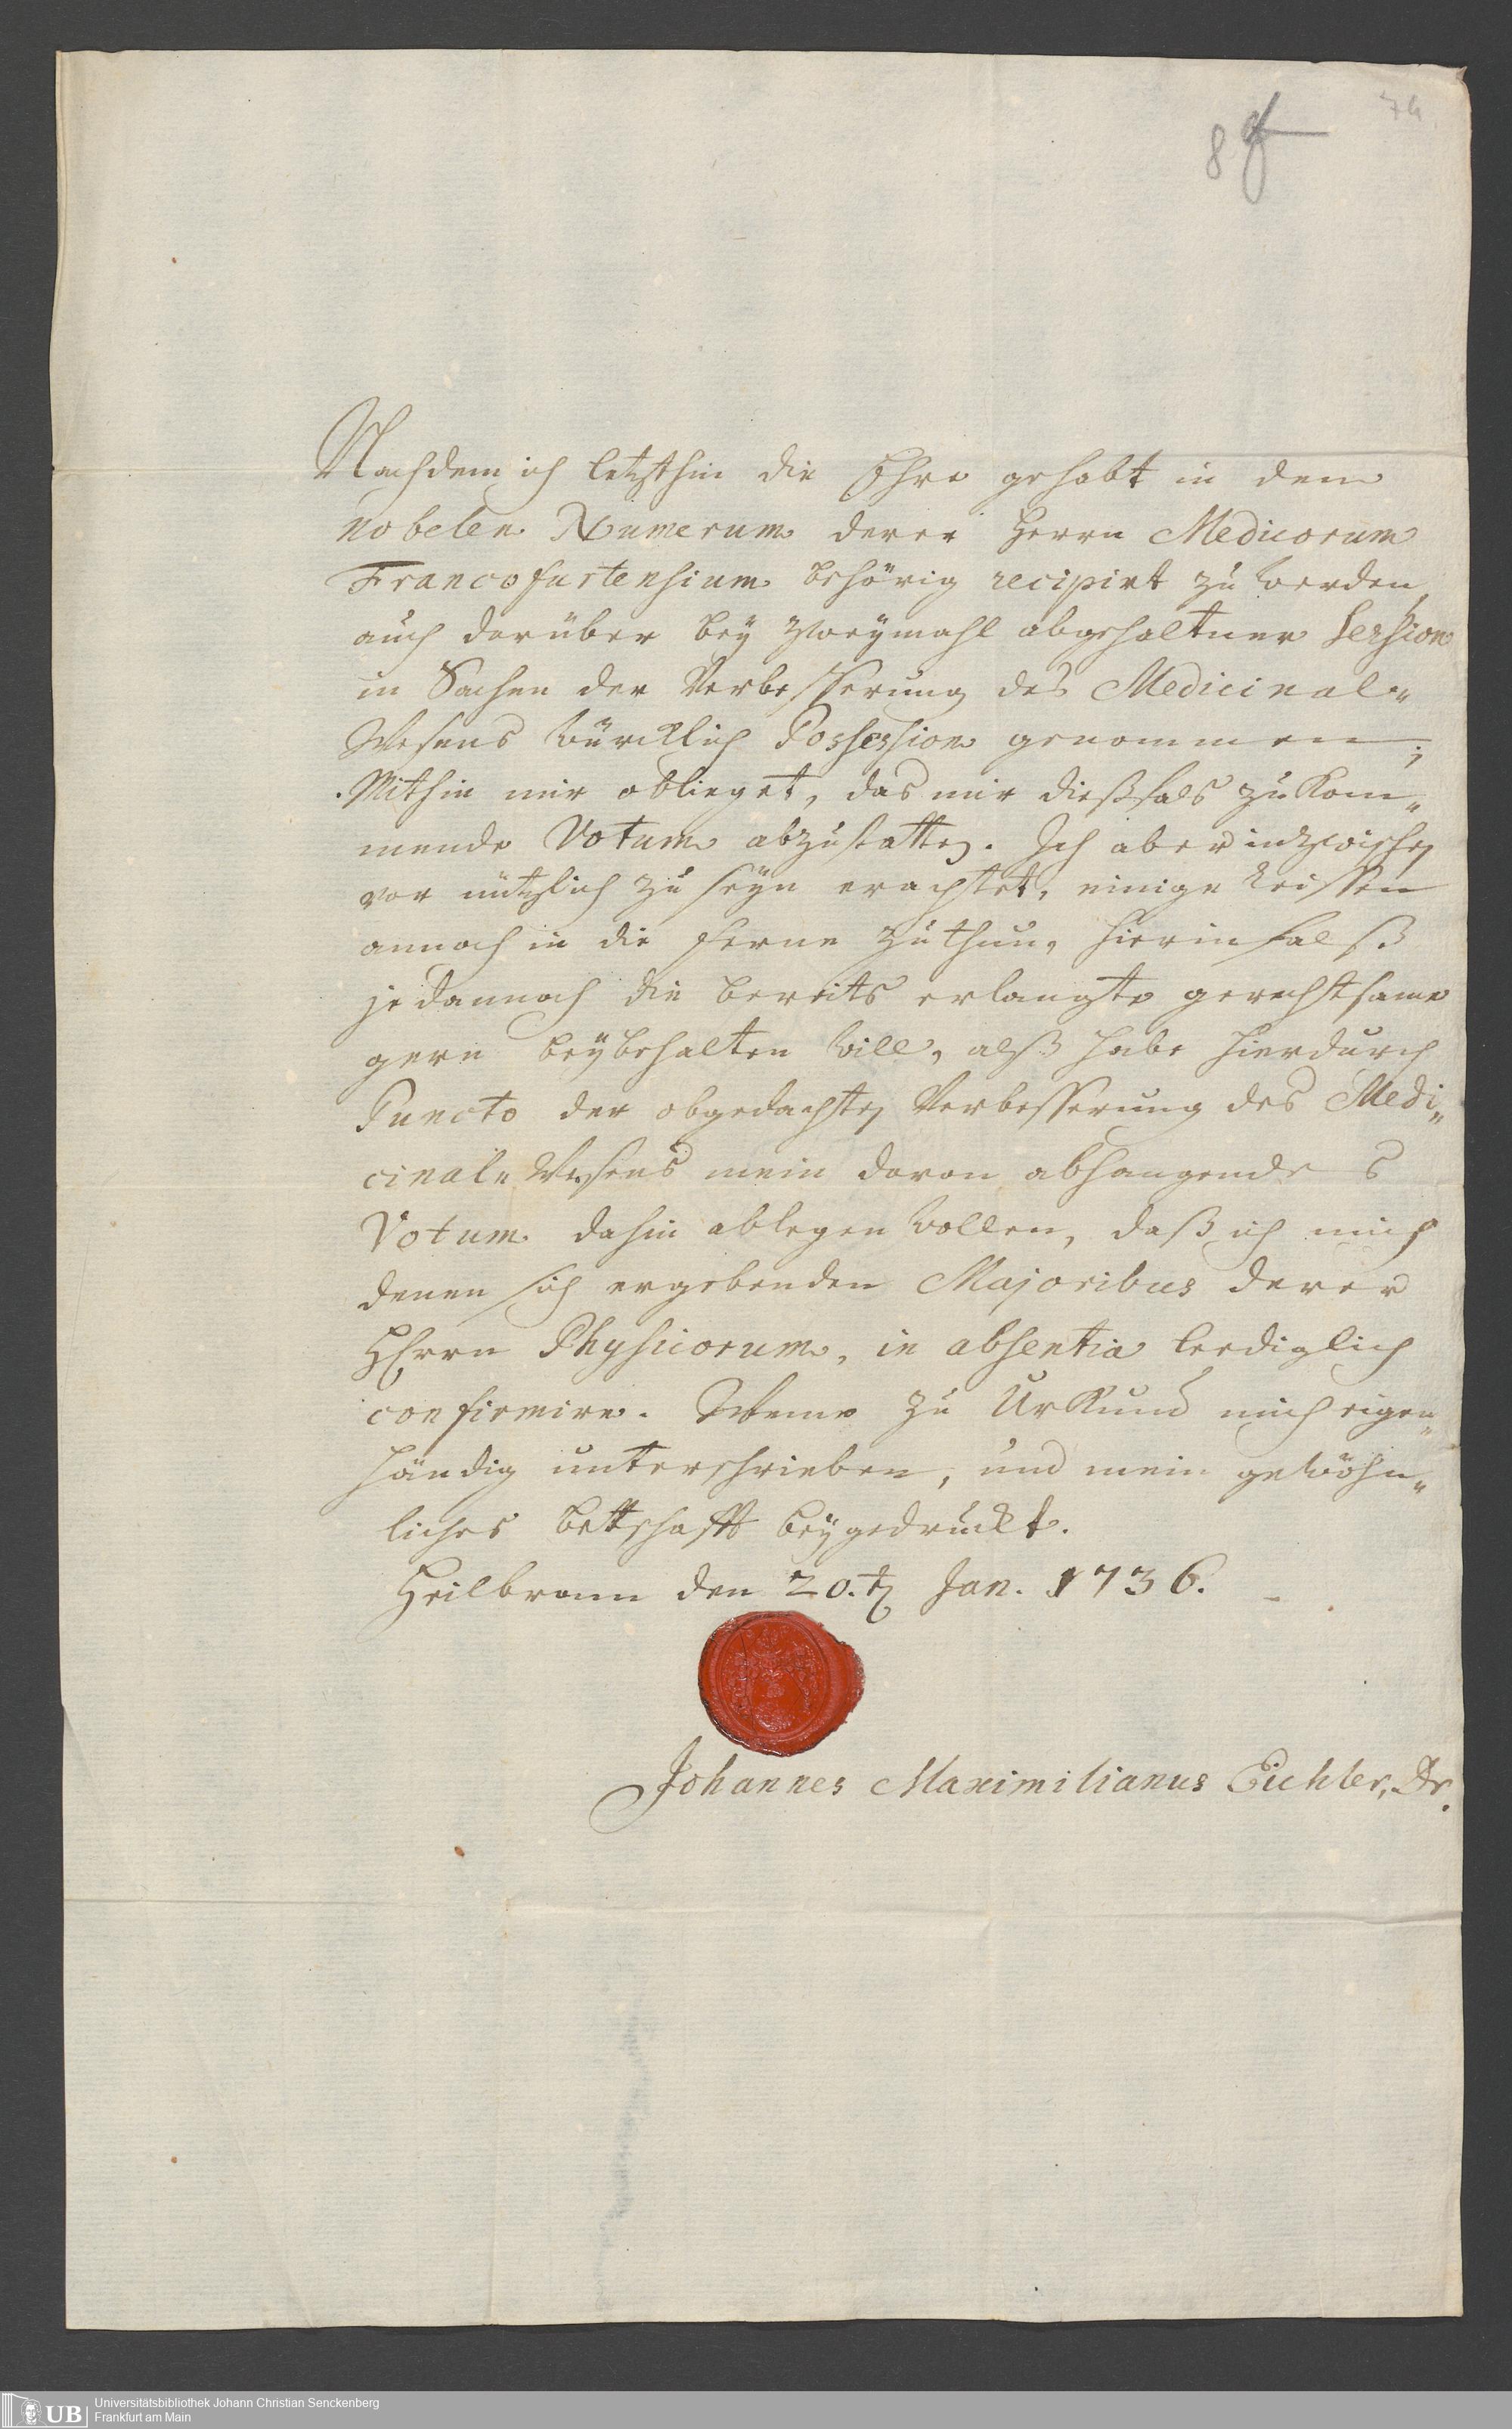 74
8
Nachdem ich letzthin die Ehre gehabt in den
nobelen Numerum derer Herrn Medicorum
Francofurtensium behörig recipirt zu werden,
auch darüber bey zweymahl abgehaltner Session
in Sachen der Verbesserung des Medicinal-
Wesens würcklich Possession genommen;
Mithin mir oblieget, das mir dießfals zukom-
mende Votum abzustatten. Ich aber inzwischen
vor nützlich zu seyn erachtet, einige Reissen
annoch in die ferne zu thun, hierinfalß
jedannoch die bereits erlangte gerechtsame
gern beybehalten will, alß habe hierdurch
Puncto der obgedachten Verbesserung des Medi-
cinal-Wesens mein davon abhangendes
Votum dahin ablegen wollen, daß ich mich
denen sich ergebenden Majoribus derer
HErrn Physicorum, in absentia lediglich
confirmire. Deme zu Urkund mich eigen-
händig unterschrieben, und mein gewöhn-
liches Bettschafft beygedruckt.
Heilbronn den 20.ten Jan. 1736.
Johannes Maximilianus Eichler, Dr.
UB
Universitätsbibliothek Johann Christian Senckenberg
Frankfurt am Main